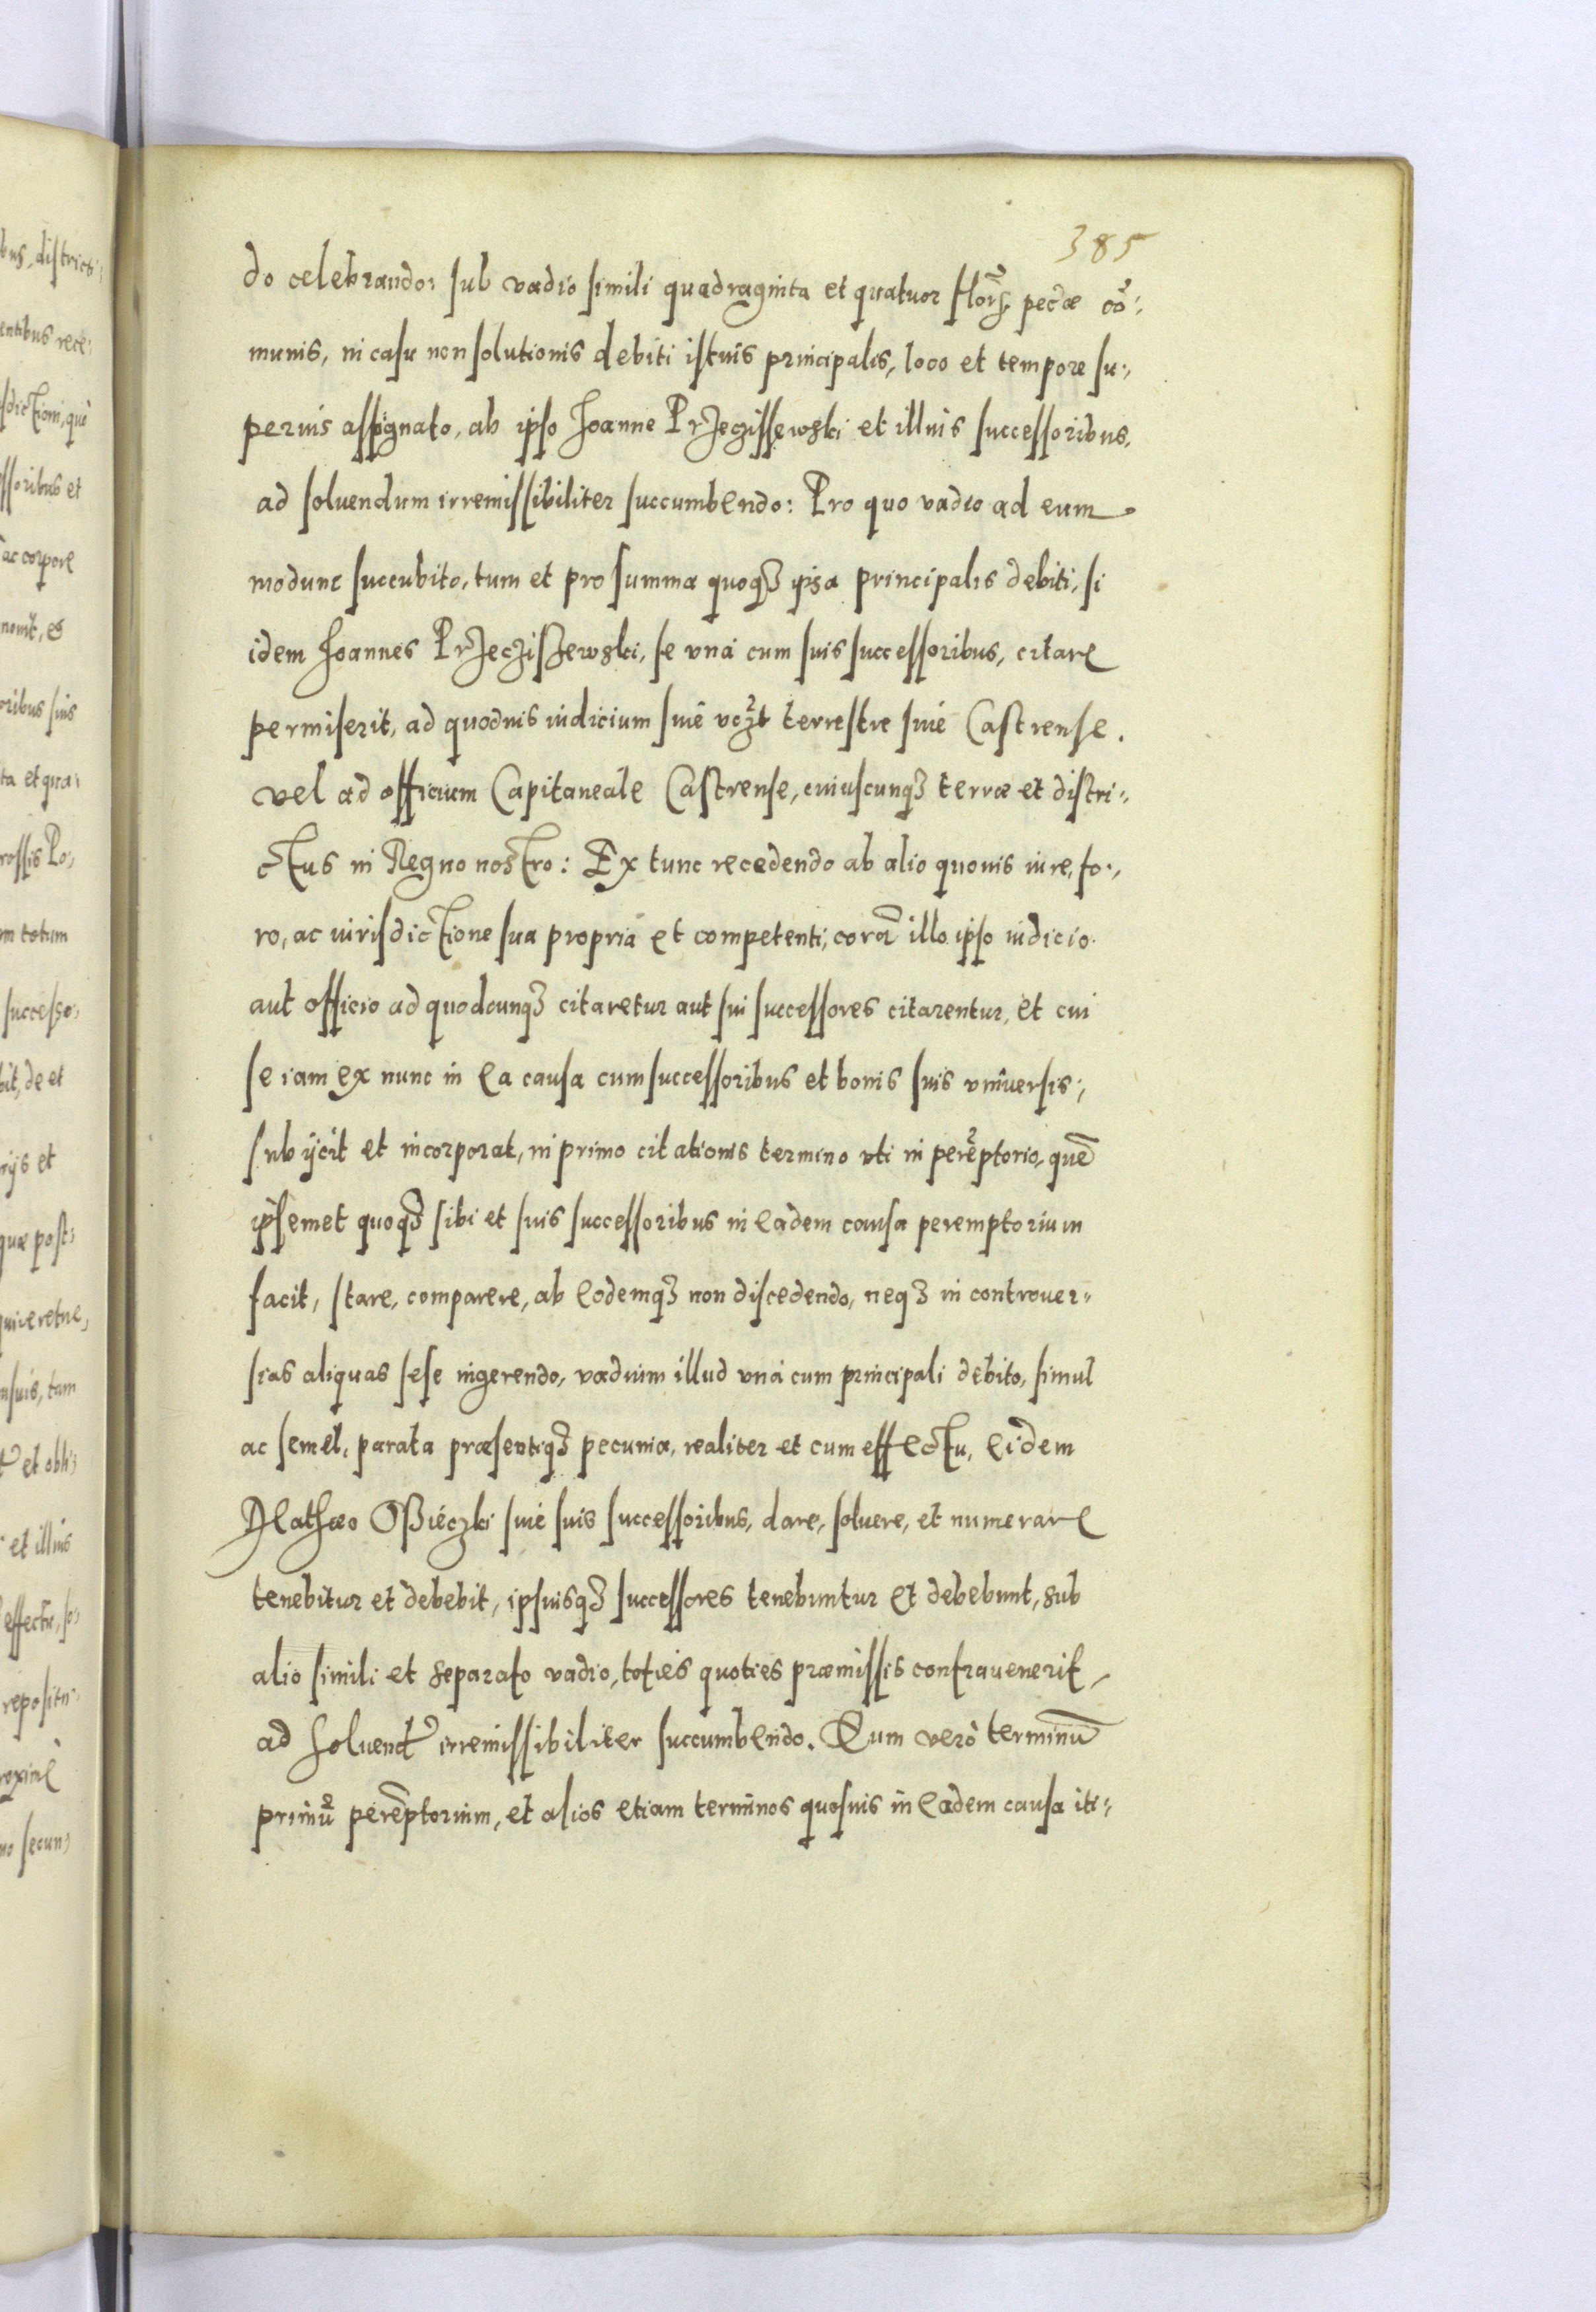 385
do celebrando: sub vadio simili quadraginta et quatuor flor: pecæ cõ:
munis, in casu non solutionis debiti istius principalis, loco et tempore su:,
perius assignato, ab ipso Joanne Przeczissewski et illius successoribus,
ad soluendum irremissibiliter succumbendo: Pro quo vadio ad eum
modum succubito, tum et pro summa quoqȝ ipsa principalis debiti, si
idem Joannes Przecziszewski, se unà cum suis successoribus, citare
permiserit, ad quoduis iudicium siuè terrestre siuè Castrense.
vel ad officium Capitaneale Castrense, cuiuscunqȝ terræ et distri:,
ctus in Regno nostro: Ex tunc recedendo ab alio quouis iure, fo:,
ro, ac iurisdictione sua propria et competenti, corã illo ipso iudicio
aut officio ad quodcunqȝ citaretur aut sui successores citarentur, et cui
se iam ex nunc in ea causa cum successoribus et bonis suis vniuersis:,
subijcit et incorporat, in primo citationis termino vti in perẽptorio, quẽ
ipsemet quoqȝ sibi et suis successoribus in eadem causa peremptorium
facit, stare, comparere, ab eodemqȝ non discedendo, neqȝ in controuer:,
sias aliquas sese ingerendo, vadium illud vnà cum principali debito, simul
ac semel, parata præsentiqȝ pecunia, realiter et cum effectu, eidem
Mathæo Ossieczki siuè suis successoribus, dare, soluere, et numerare
tenebitur et debebit, ipsiusqȝ successores tenebuntur et debebunt, sub
alio simili et separato vadio, toties quoties præmissis contrauenerit,
ad soluendũ irremissibiliter succumbendo. Eum verò terminũ
primũ perẽptorium, et alios etiam terminos quosuis in eadem causa iti:,